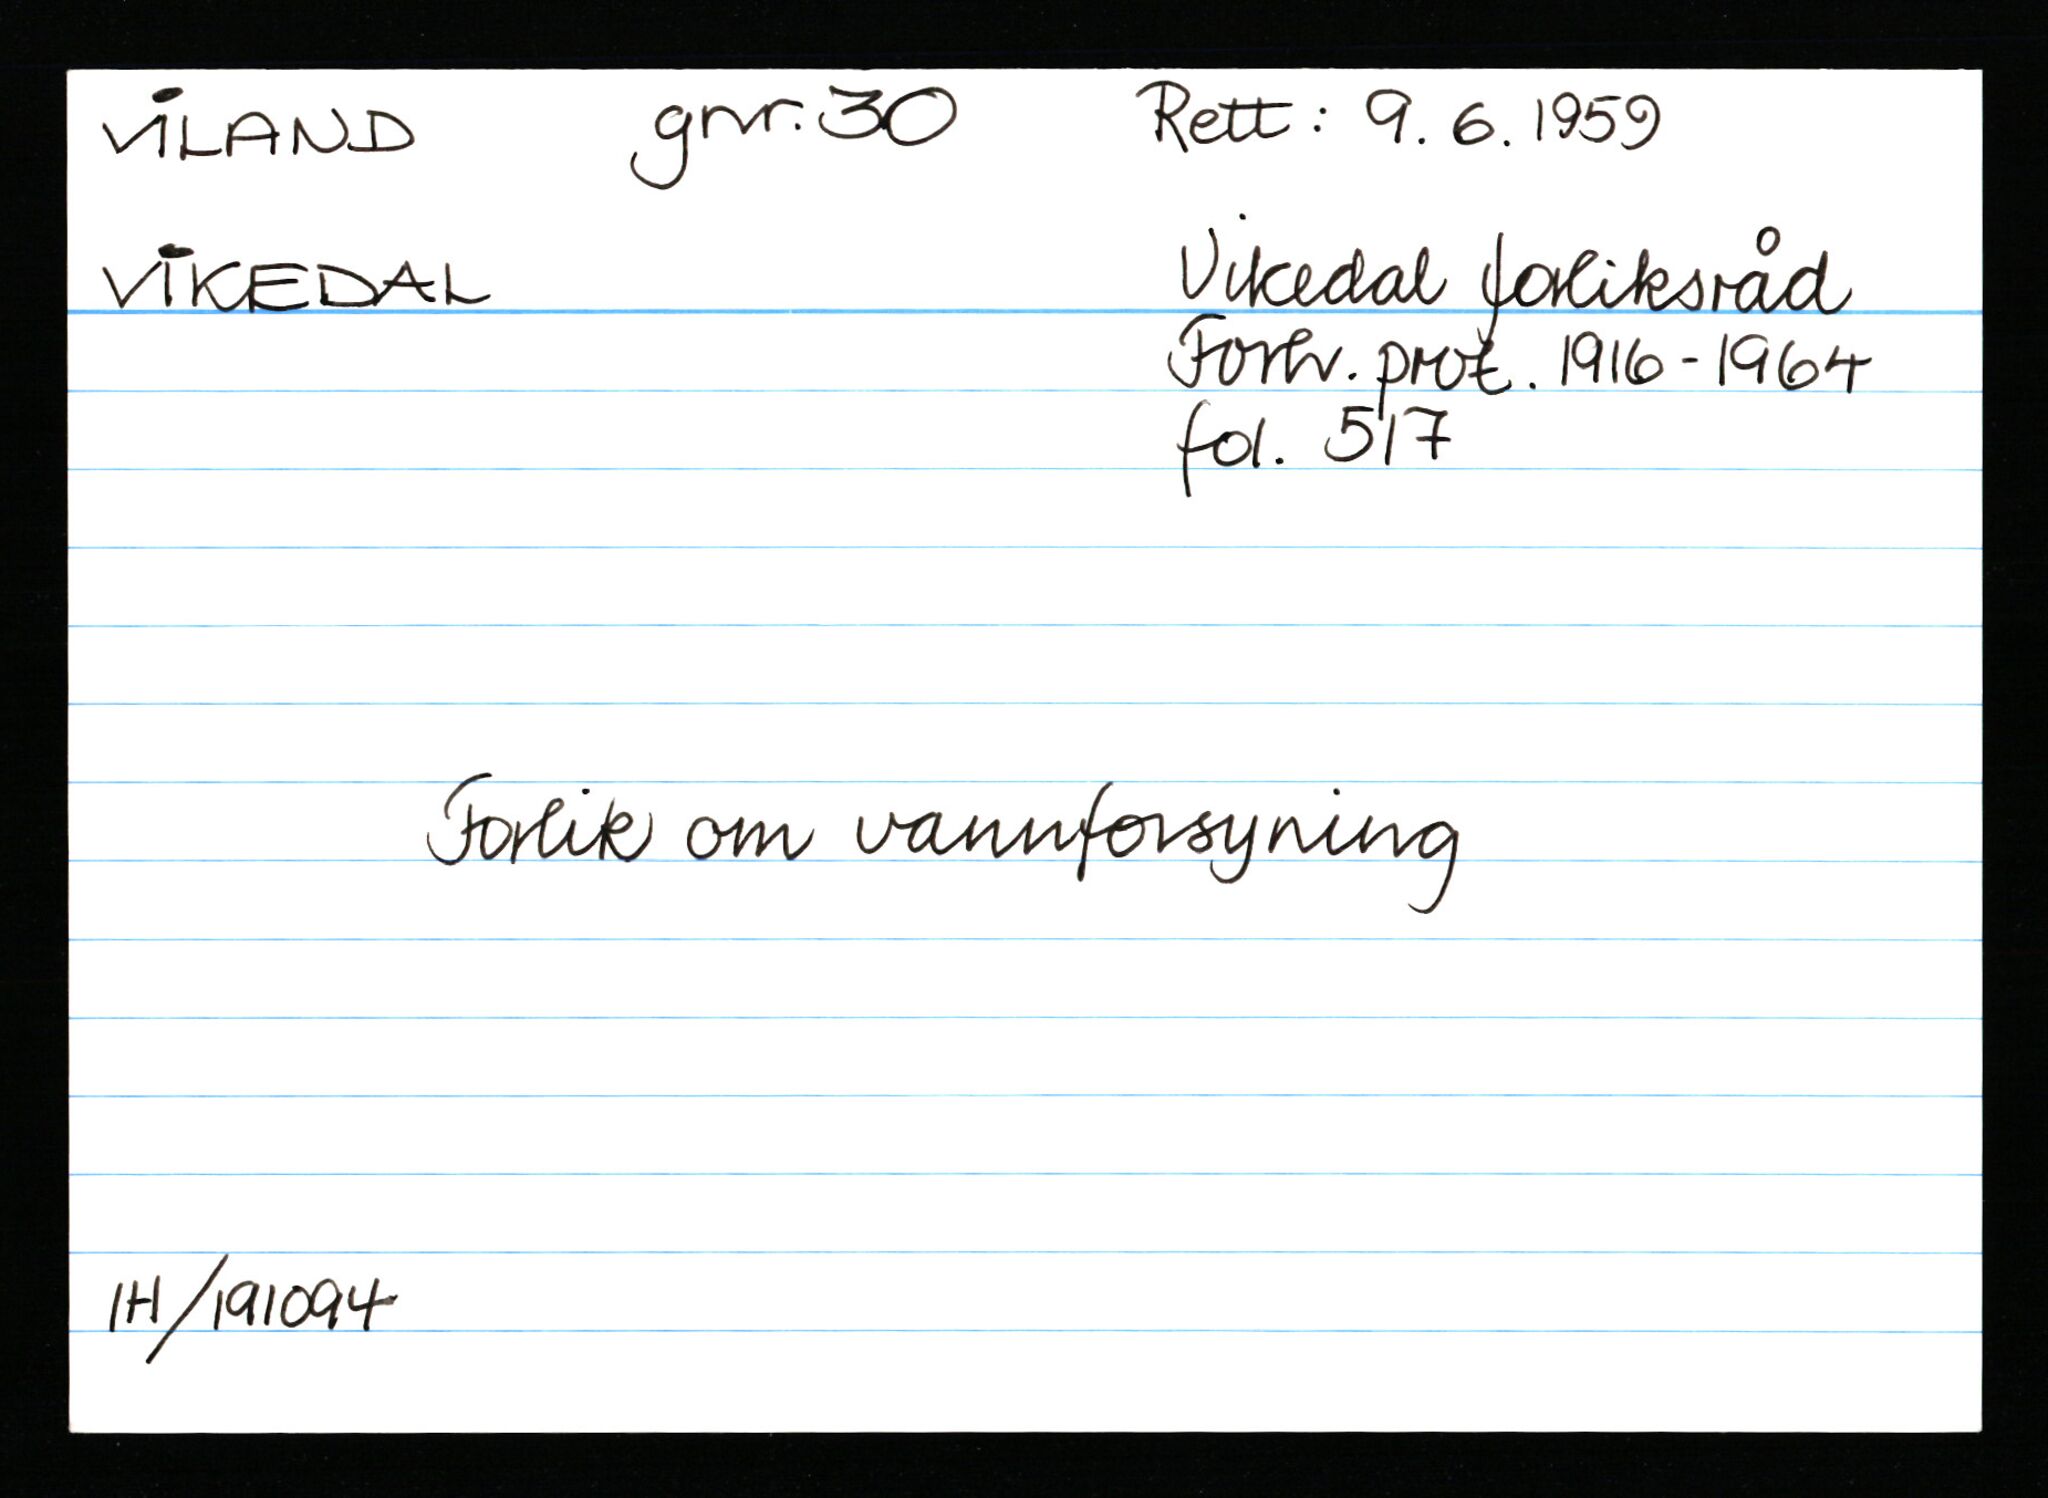 VILAND gnr. 30 Rett: 9. 6. 1959
VIKEDAL Vikedal forliksråd
Forhv. prot. 1916-1964
fol. 517
Forlik om vannforsyning
IH/191094